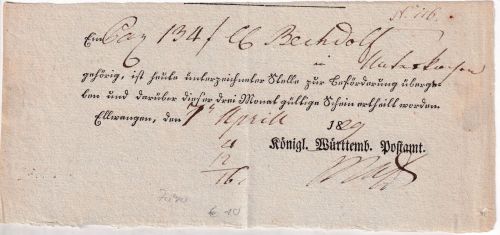 N. 116.
Ein Paq 134 f CC Bechdolf
in
gehörig, ist heute unterzeichneter Stelle zur Beförderung überge-
ben und darüber dieser drei Monat gültige Schein ertheilt worden.
Ellwangen, den 7 Aprill 1829
Königl. Württemb. Postamt.
4
12
16
€ 10